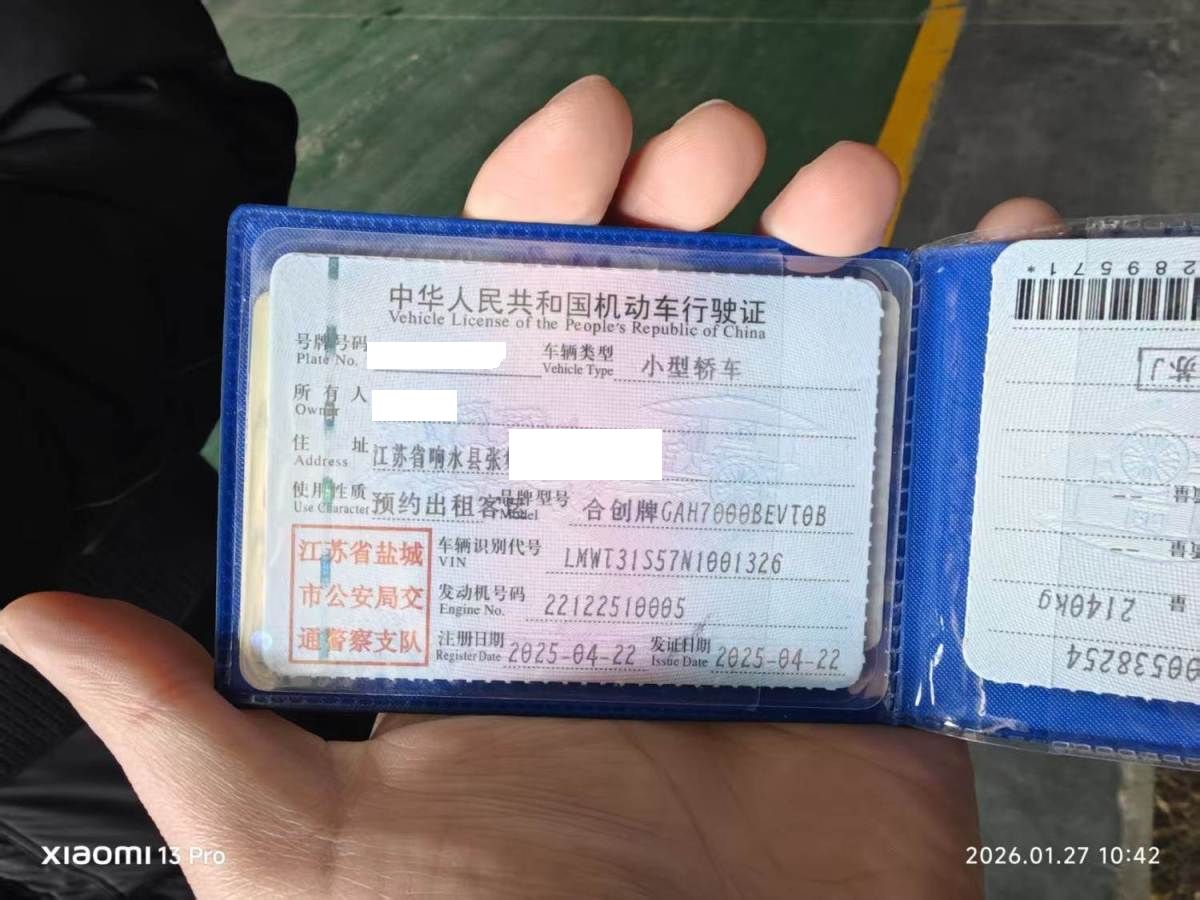 中华人民共和国机动车行驶证
Vehicle License of the People's Republic of China
号牌号码
Plate No.
车辆类型
Vehicle Type
小型轿车
所有人
Owner
住址
Address
江苏省响水县张
使用性质
Use Character
预约出租客
品牌型号
Model
合创牌GAH7000BEVT0B
江苏省盐城
市公安局交
通警察支队
车辆识别代号
VIN
LMWT31S57N1001326
发动机号码
Engine No.
22122510005
注册日期
Register Date
2025-04-22
发证日期
Issue Date
2025-04-22
289571*
苏J
2140kg
00538254
XIAOMI 13 Pro
2026.01.27 10:42